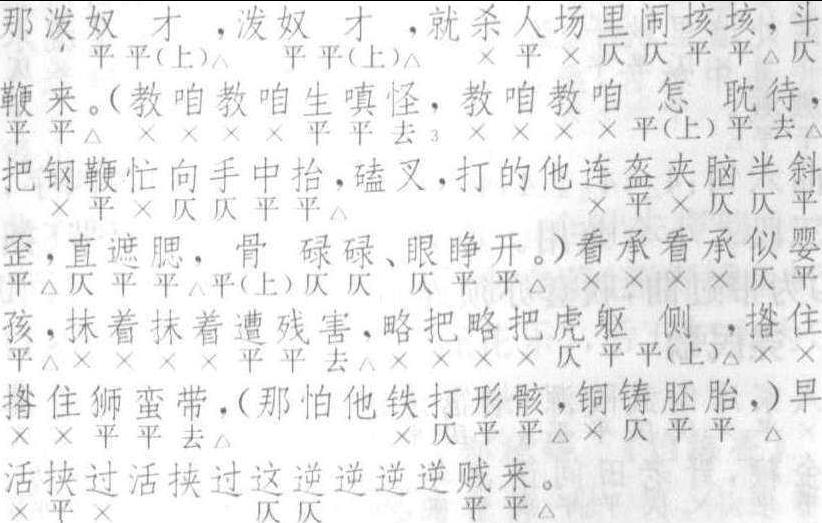 那泼奴才,泼奴才,就杀人场里闹垓垓,斗
平平(上)△ 平平(上)△ ×平×仄仄平平△仄
鞭来。(教咱教咱生嗔怪,教咱教咱怎耽待,
平平△ ××××平平去3 ××××平(上)平去△
把钢鞭忙向手中抬,磕叉,打的他连盔夹脑半斜
×平×仄仄平平△ ×平×仄仄平
歪,直遮腮,骨碌碌、眼睁开。)看承看承似婴
平△仄平平△平(上)仄仄 仄平平△ ××××仄平
孩,抹着抹着遭残害,略把略把虎躯侧,撍住
平△××××平平去△××××仄平平(上)△××
撍住狮蛮带,(那怕他铁打形骸,铜铸胚胎,)早
××平平去△ ×仄平平△×仄平平△×
活挟过活挟过这逆逆逆逆贼来。
×平× 仄仄 平平△